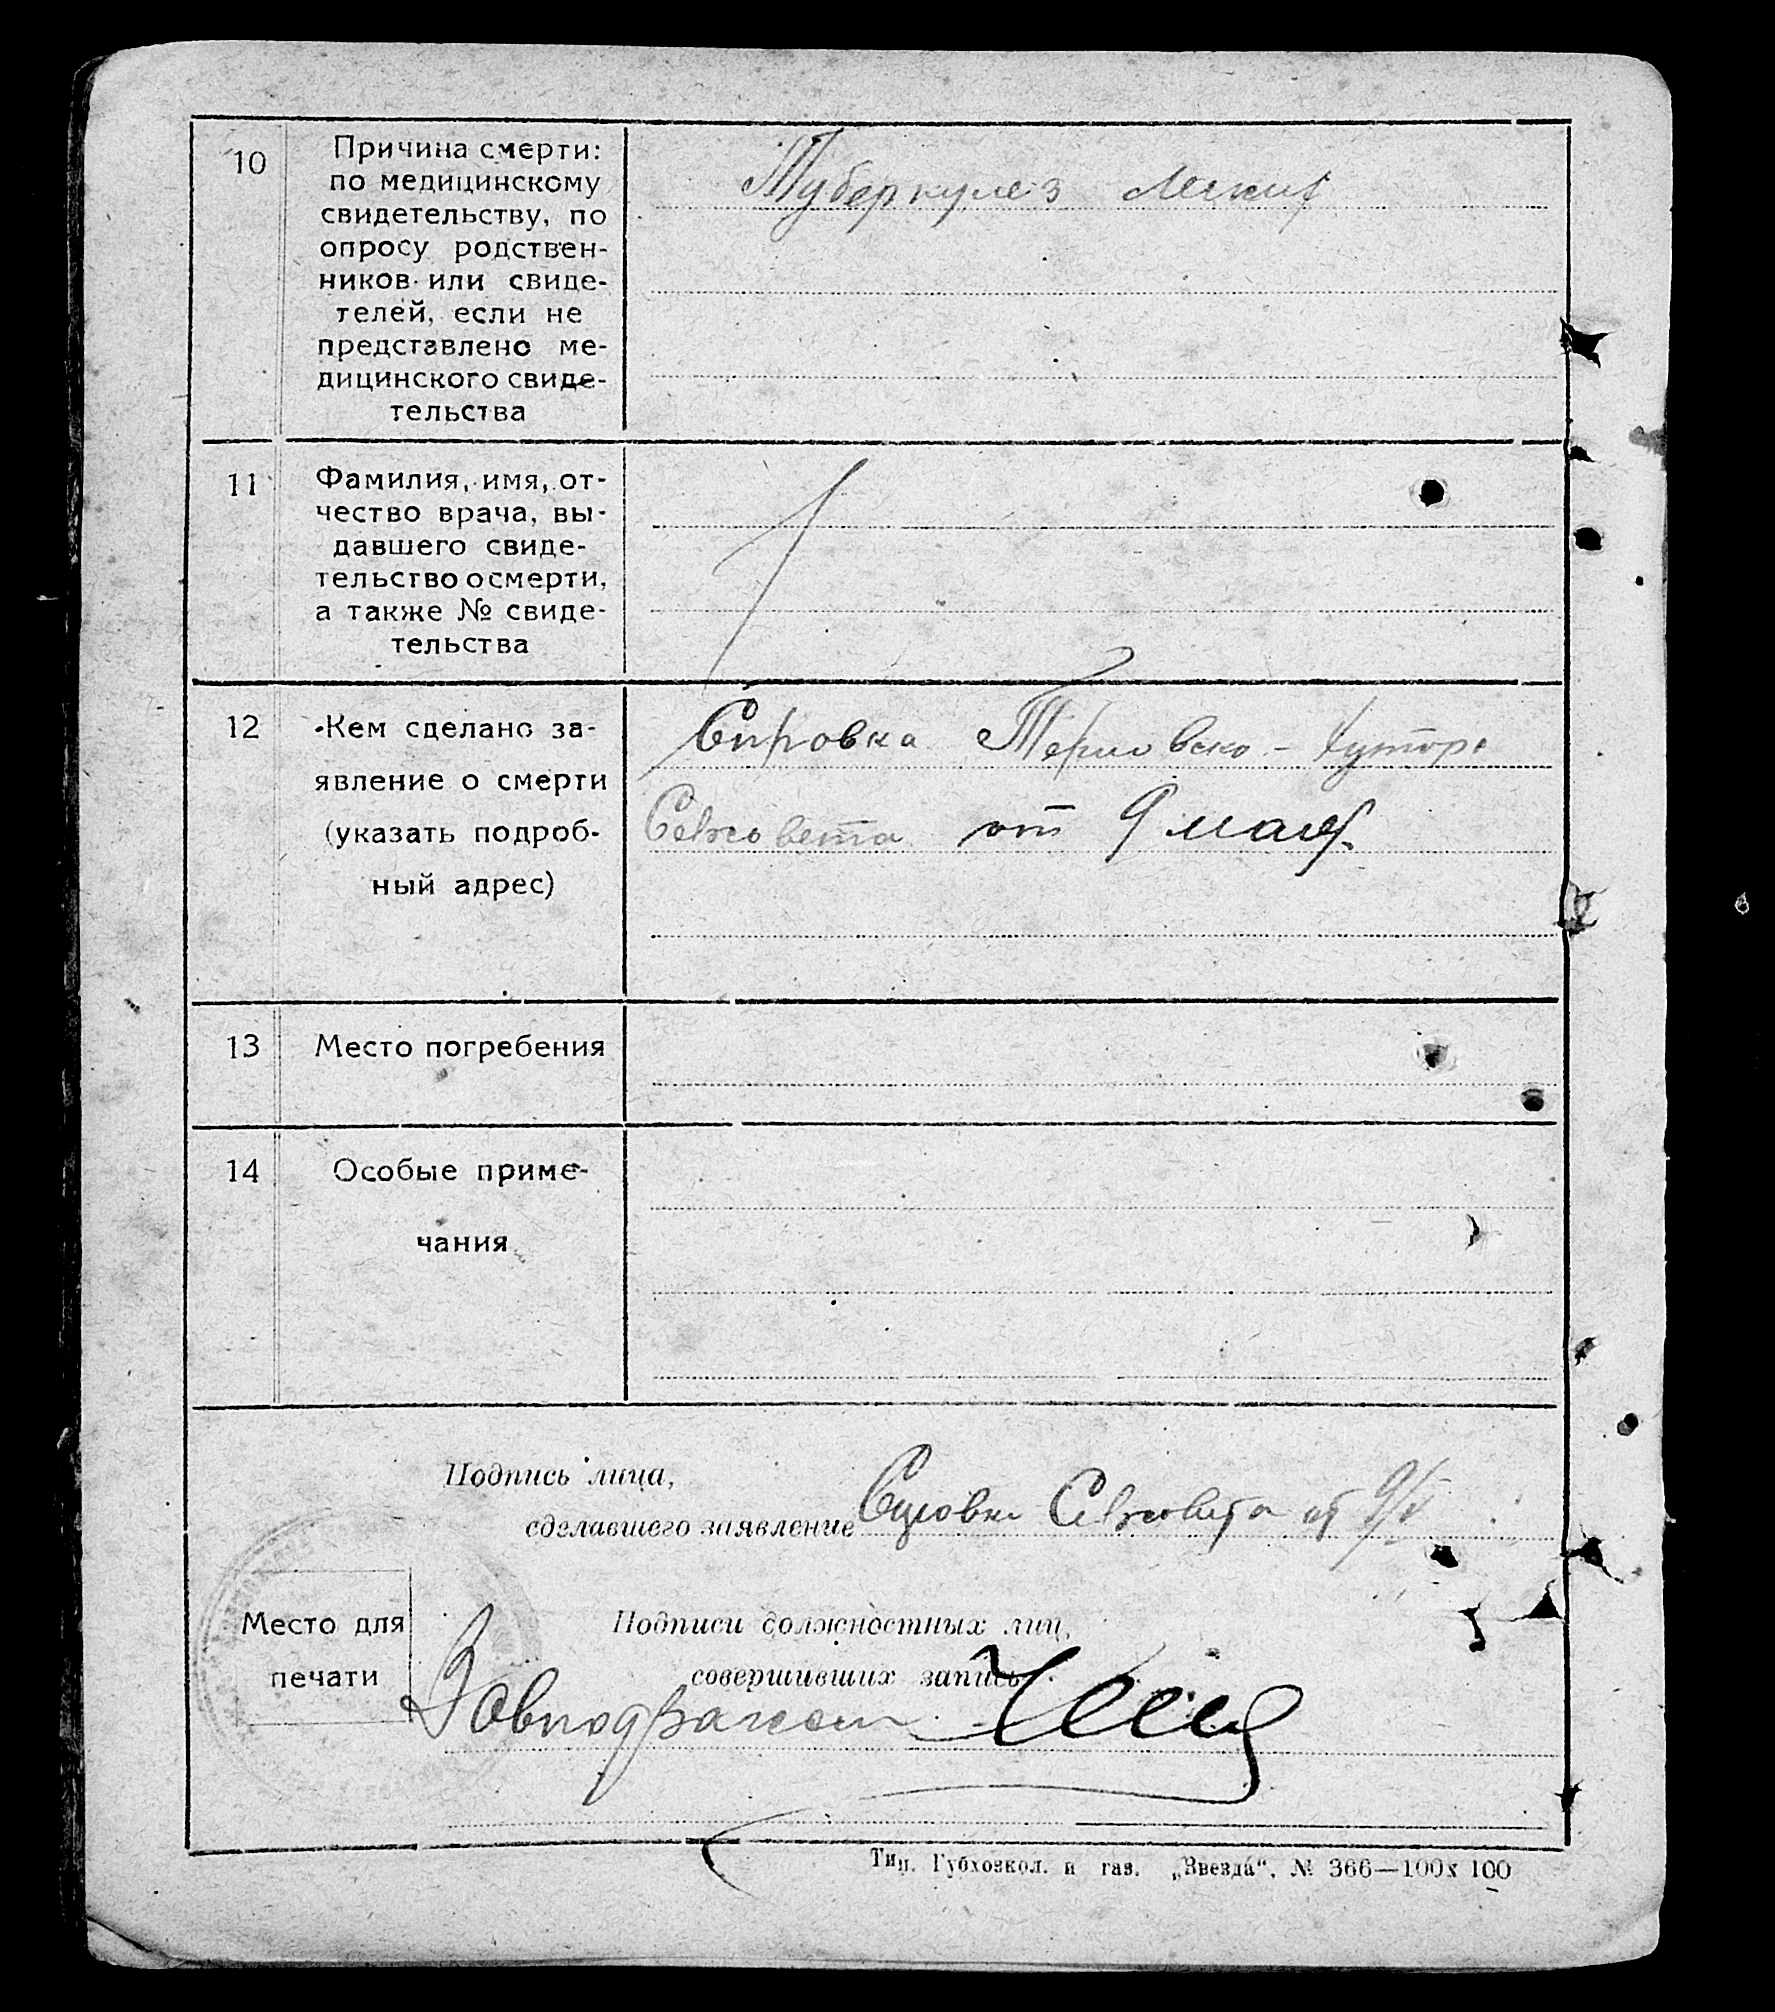 10
Причина смерти:
по медицинскому
свидетельству, по
опросу родствен-
ников или свиде-
телей, если не
представлено ме-
дицинского свиде-
тельства
Туберкулез легких
11
Фамилия, имя, от-
чество врача, вы-
давшего свиде-
тельство о смерти,
а также № свиде-
тельства
12
Кем сделано за-
явление о смерти
(указать подроб-
ный адрес)
Справка
Сельсовета от 9 мая
13
Место погребения
14
Особые приме-
чания
Подпись лица,
сделавшего заявление
Справка Сельсовета от 9/V
Место для
печати
Подписи должностных лиц,
совершивших запись
Завподзагсом
Тип. Губхозкол. и газ. „Звезда“, № 366—100х100